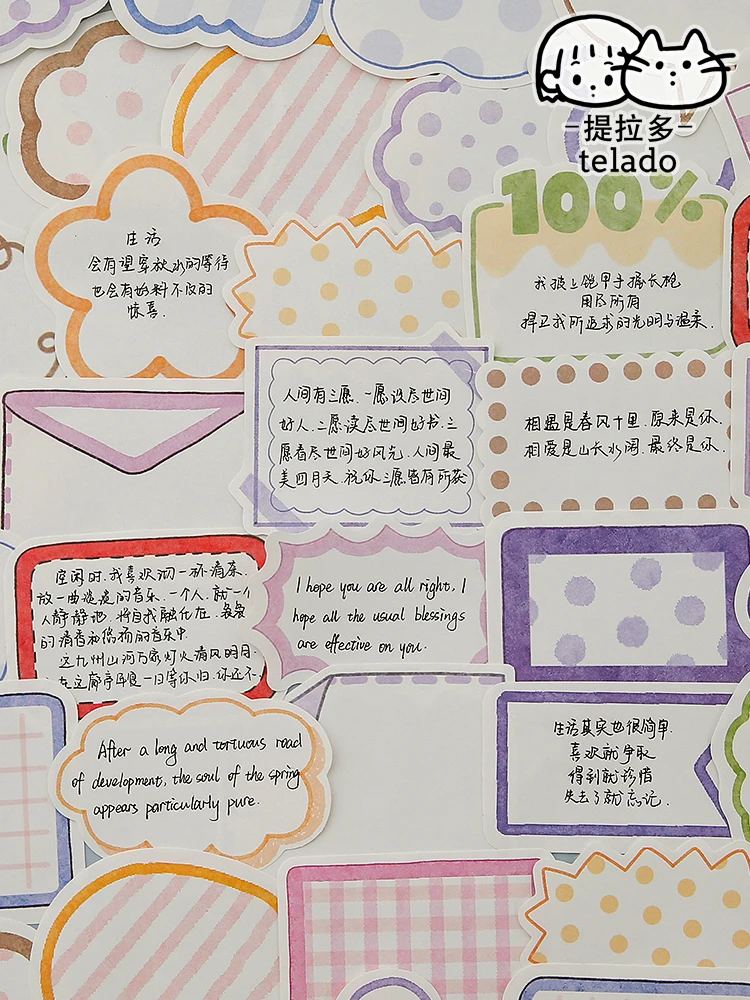 -提拉多-
telado
100%
生活
会有望穿秋水的等待
也会有始料不及的
惊喜.
我披上铠甲手捅长枪
用尽所有
捍卫我所追求的光明与温柔.
人间有三愿.一愿识尽世间
好人.二愿读尽世间好书.三
愿看尽世间好风光.人间最
美四月天.祝你三愿皆有所获
相遇是春风十里.原来是你.
相爱是山长水阔.最终是你.
空闲时.我喜欢沏一杯清茶.
放一曲淡淡的音乐.一个人.就一个
人静静地.将自我融化在.袅袅
的清香和
的音乐中
这九州山河万家灯火清风明月.
在这
等你归.你还不
I hope you are all right, I
hope all the usual blessings
are effective on you.
After a long and tortuous road
of development, the soul of the spring
appears particularly pure.
生活其实也很简单.
喜欢就争取
得到就珍惜
失去了就忘记.